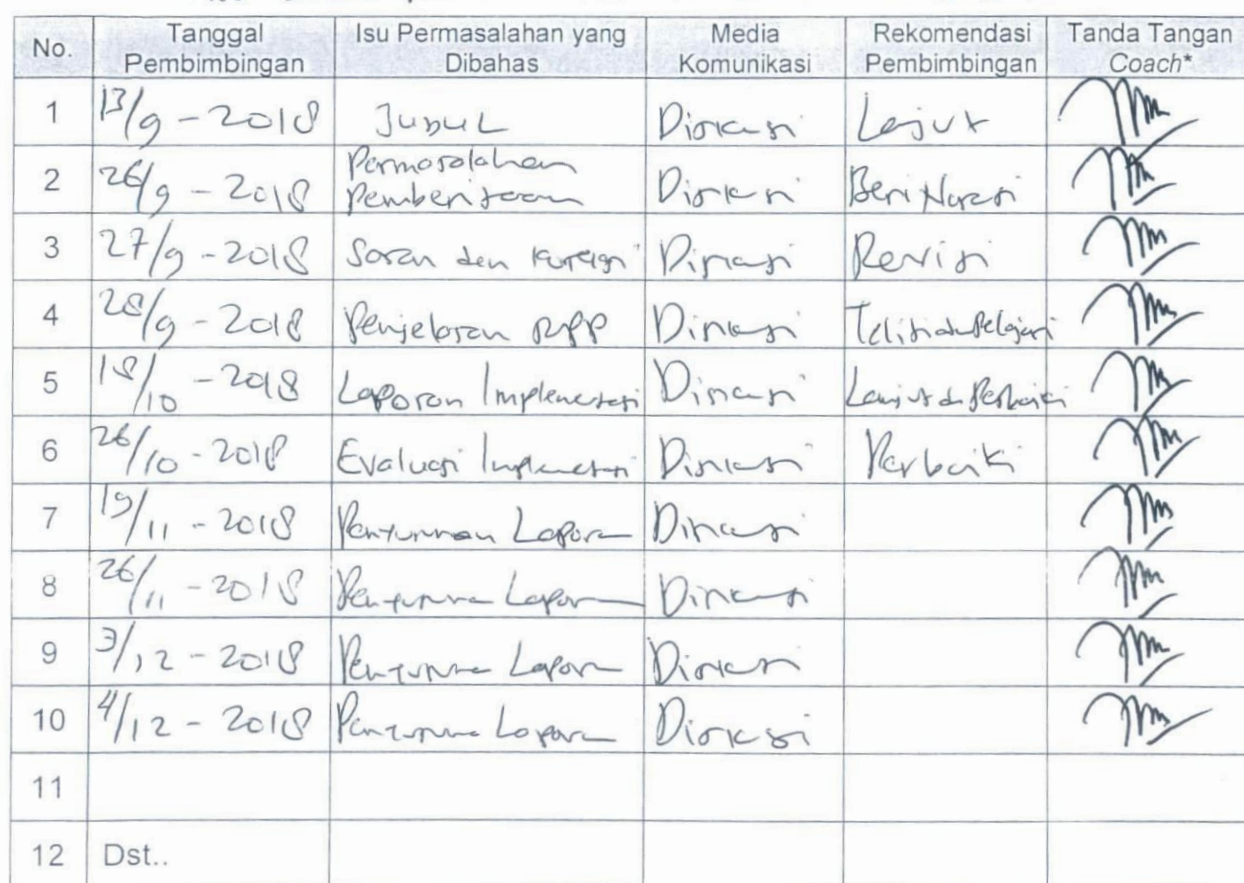 No. Tanggal Pembimbingan Isu Permasalahan yang Dibahas Media Komunikasi Rekomendasi Pembimbingan Tanda Tangan Coach*
1 13/9 - 2018 Judul Diskusi Lanjut
2 26/9 - 2018 Permasalahan Pemberitaan Diskusi Beri Narasi
3 27/9 - 2018 Saran dan Koreksi Diskusi Revisi
4 28/9 - 2018 Penjelasan RPP Diskusi Teliti dan Pelajari
5 18/10 - 2018 Laporan Implementasi Diskusi Lanjut dan Perbaiki
6 26/10 - 2018 Evaluasi Implementasi Diskusi Perbaiki
7 19/11 - 2018 Penyusunan Laporan Diskusi
8 26/11 - 2018 Penyusunan Laporan Diskusi
9 3/12 - 2018 Penyusunan Laporan Diskusi
10 4/12 - 2018 Penyusunan Laporan Diskusi
11
12 Dst..